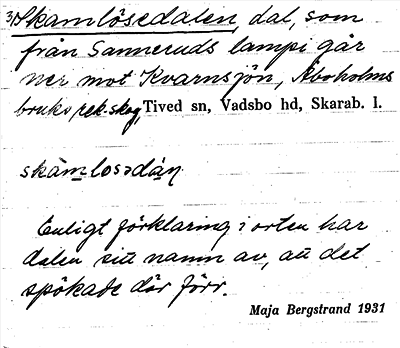 3) Skamlösedalen, dal, som
från Sanneruds lampi går
ner mot Kvarnsjön, Åboholms
bruks rek. skog, Tived sn, Vadsbo hd, Skarab. l.
skàm̲losədán̲
Enligt förklaring i orten har
dalen sitt namn av, att det
spökade där förr.
Maja Bergstrand 1931